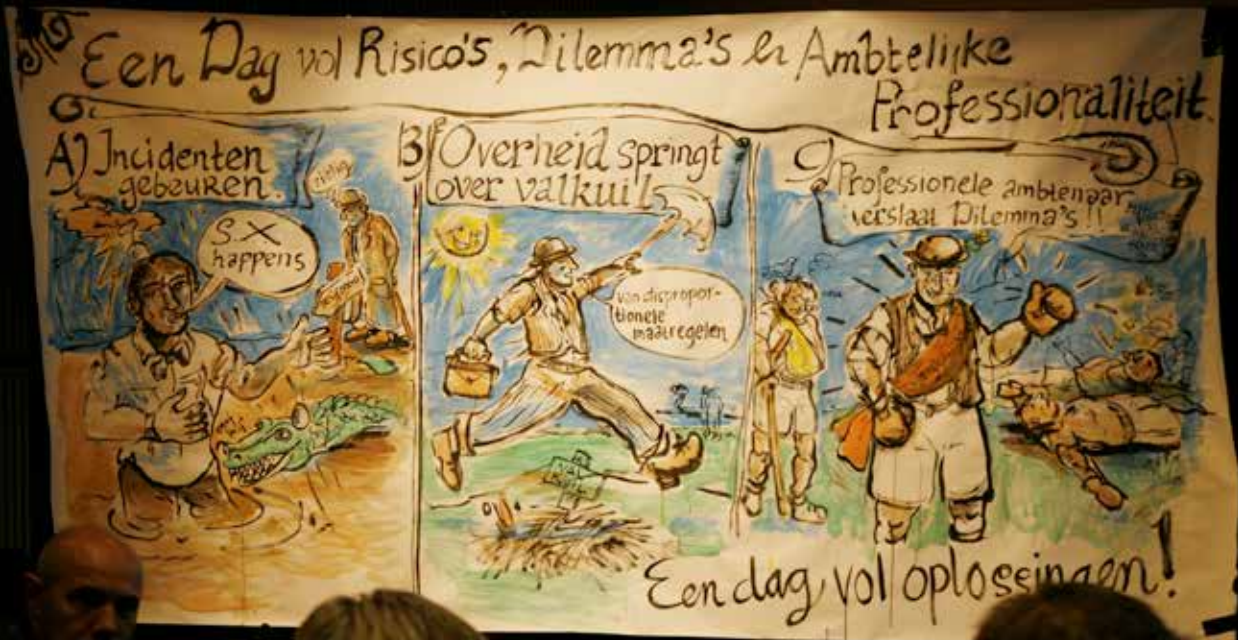 Een Dag vol Risico's, Dilemma's en Ambtelijke
Professionaliteit.
A) Incidenten
gebeuren.
S.X
happens
B) Overheid springt
over valkuil
van dispropor-
tionele
maatregelen
VAL
C) Professionele ambtenaar
verslaat Dilemma's !!
Een dag vol oplossingen!